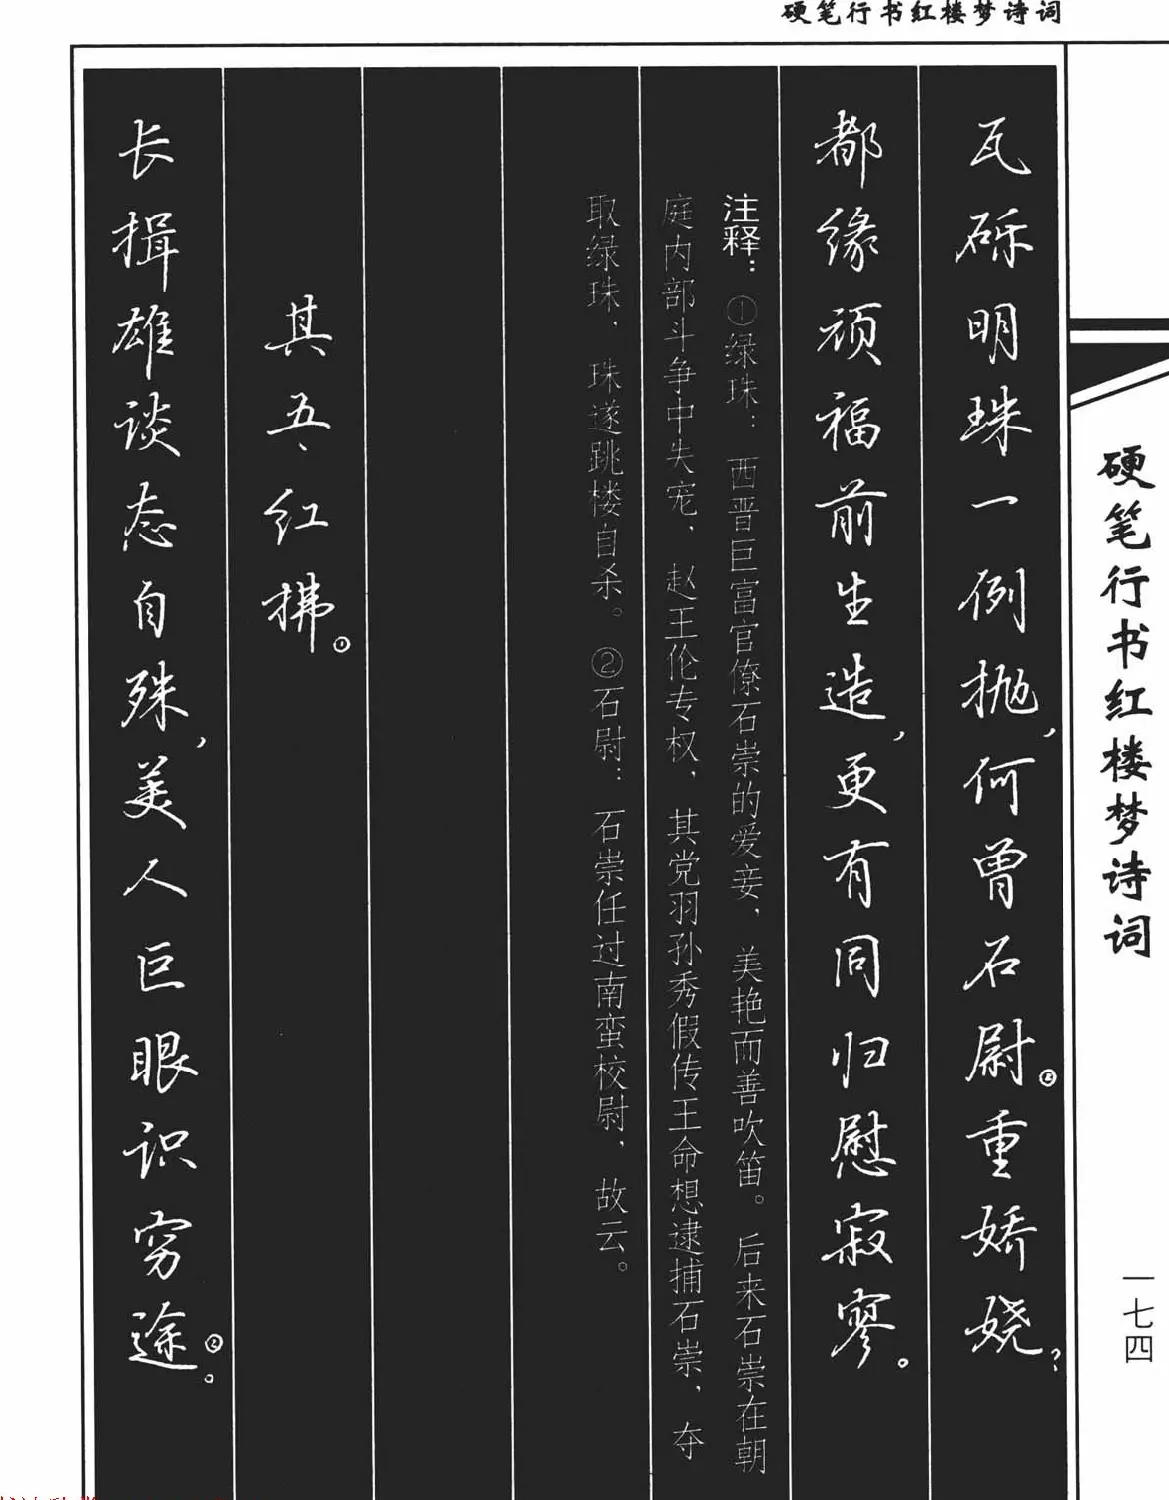 硬笔行书红楼梦诗词
硬笔行书红楼梦诗词
一七四
瓦砾明珠一例抛，何曾石尉②重娇娆？
都缘顽福前生造，更有同归慰寂寥。
注释：①绿珠：西晋巨富官僚石崇的爱妾，美艳而善吹笛。后来石崇在朝
庭内部斗争中失宠，赵王伦专权，其党羽孙秀假传王命想逮捕石崇，夺
取绿珠，珠遂跳楼自杀。②石尉：石崇任过南蛮校尉，故云。
其五、红拂①
长揖雄谈态自殊，美人巨眼识穷途②。